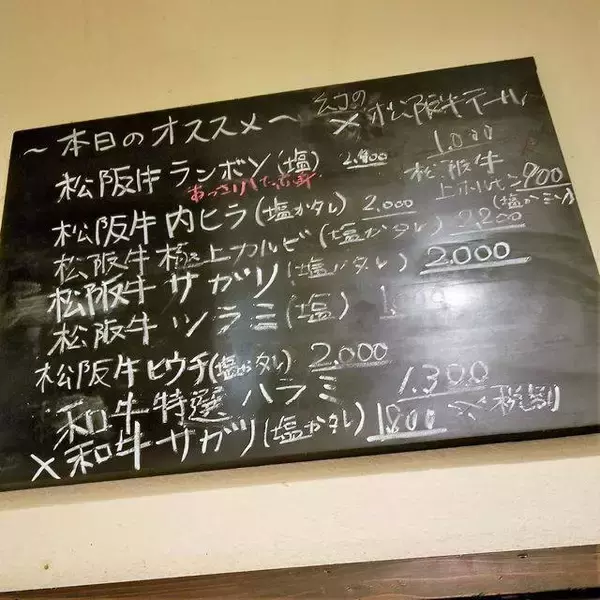 ~本日のオススメ~
松阪牛ランボソ(塩) 2,400
あっさりした
松阪牛内ヒラ(塩かタレ) 2,000
松阪牛極上カルビ(塩かタレ) 2,200
松阪牛サガリ(塩かタレ) 2,000
松阪牛ツラミ(塩)
松阪牛ヒウチ(塩かタレ) 2,000
和牛特選ハラミ 1,300
×和牛サガリ(塩かタレ) 1,800 税別
幻の
×松阪牛テール
1,000
松阪牛
上ホルモン 900
(塩かミソ)